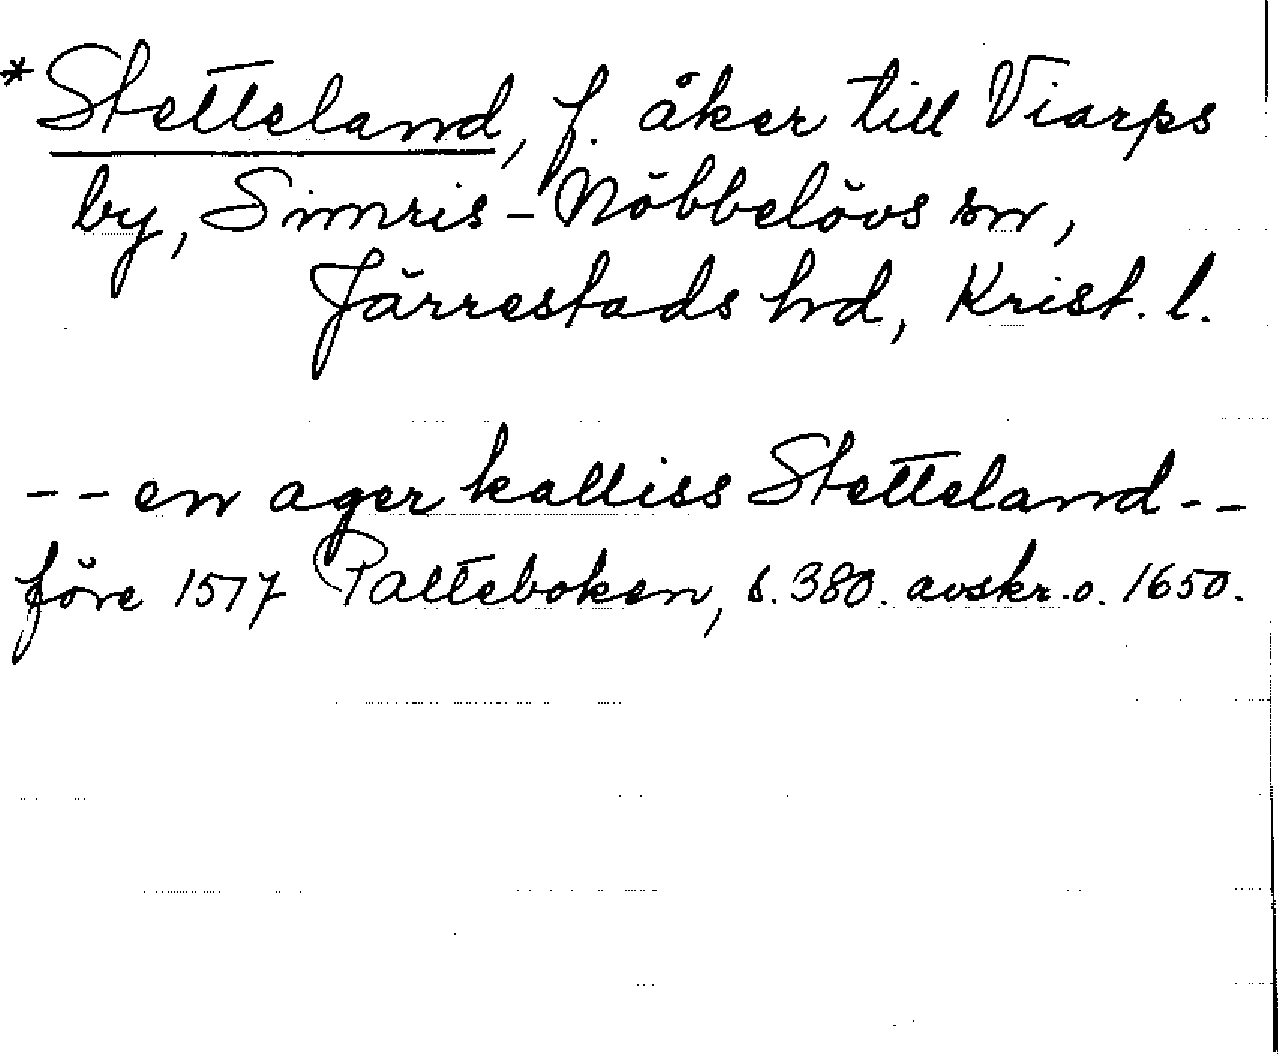 *Stetteland, f. åker till Viarps
by, Simris-Nöbbelövs sn,
Järrestads hd, Krist. l.
-- en ager kalliss Stetteland --
före 1517 Palteboken, s. 380. avskr. o. 1650.